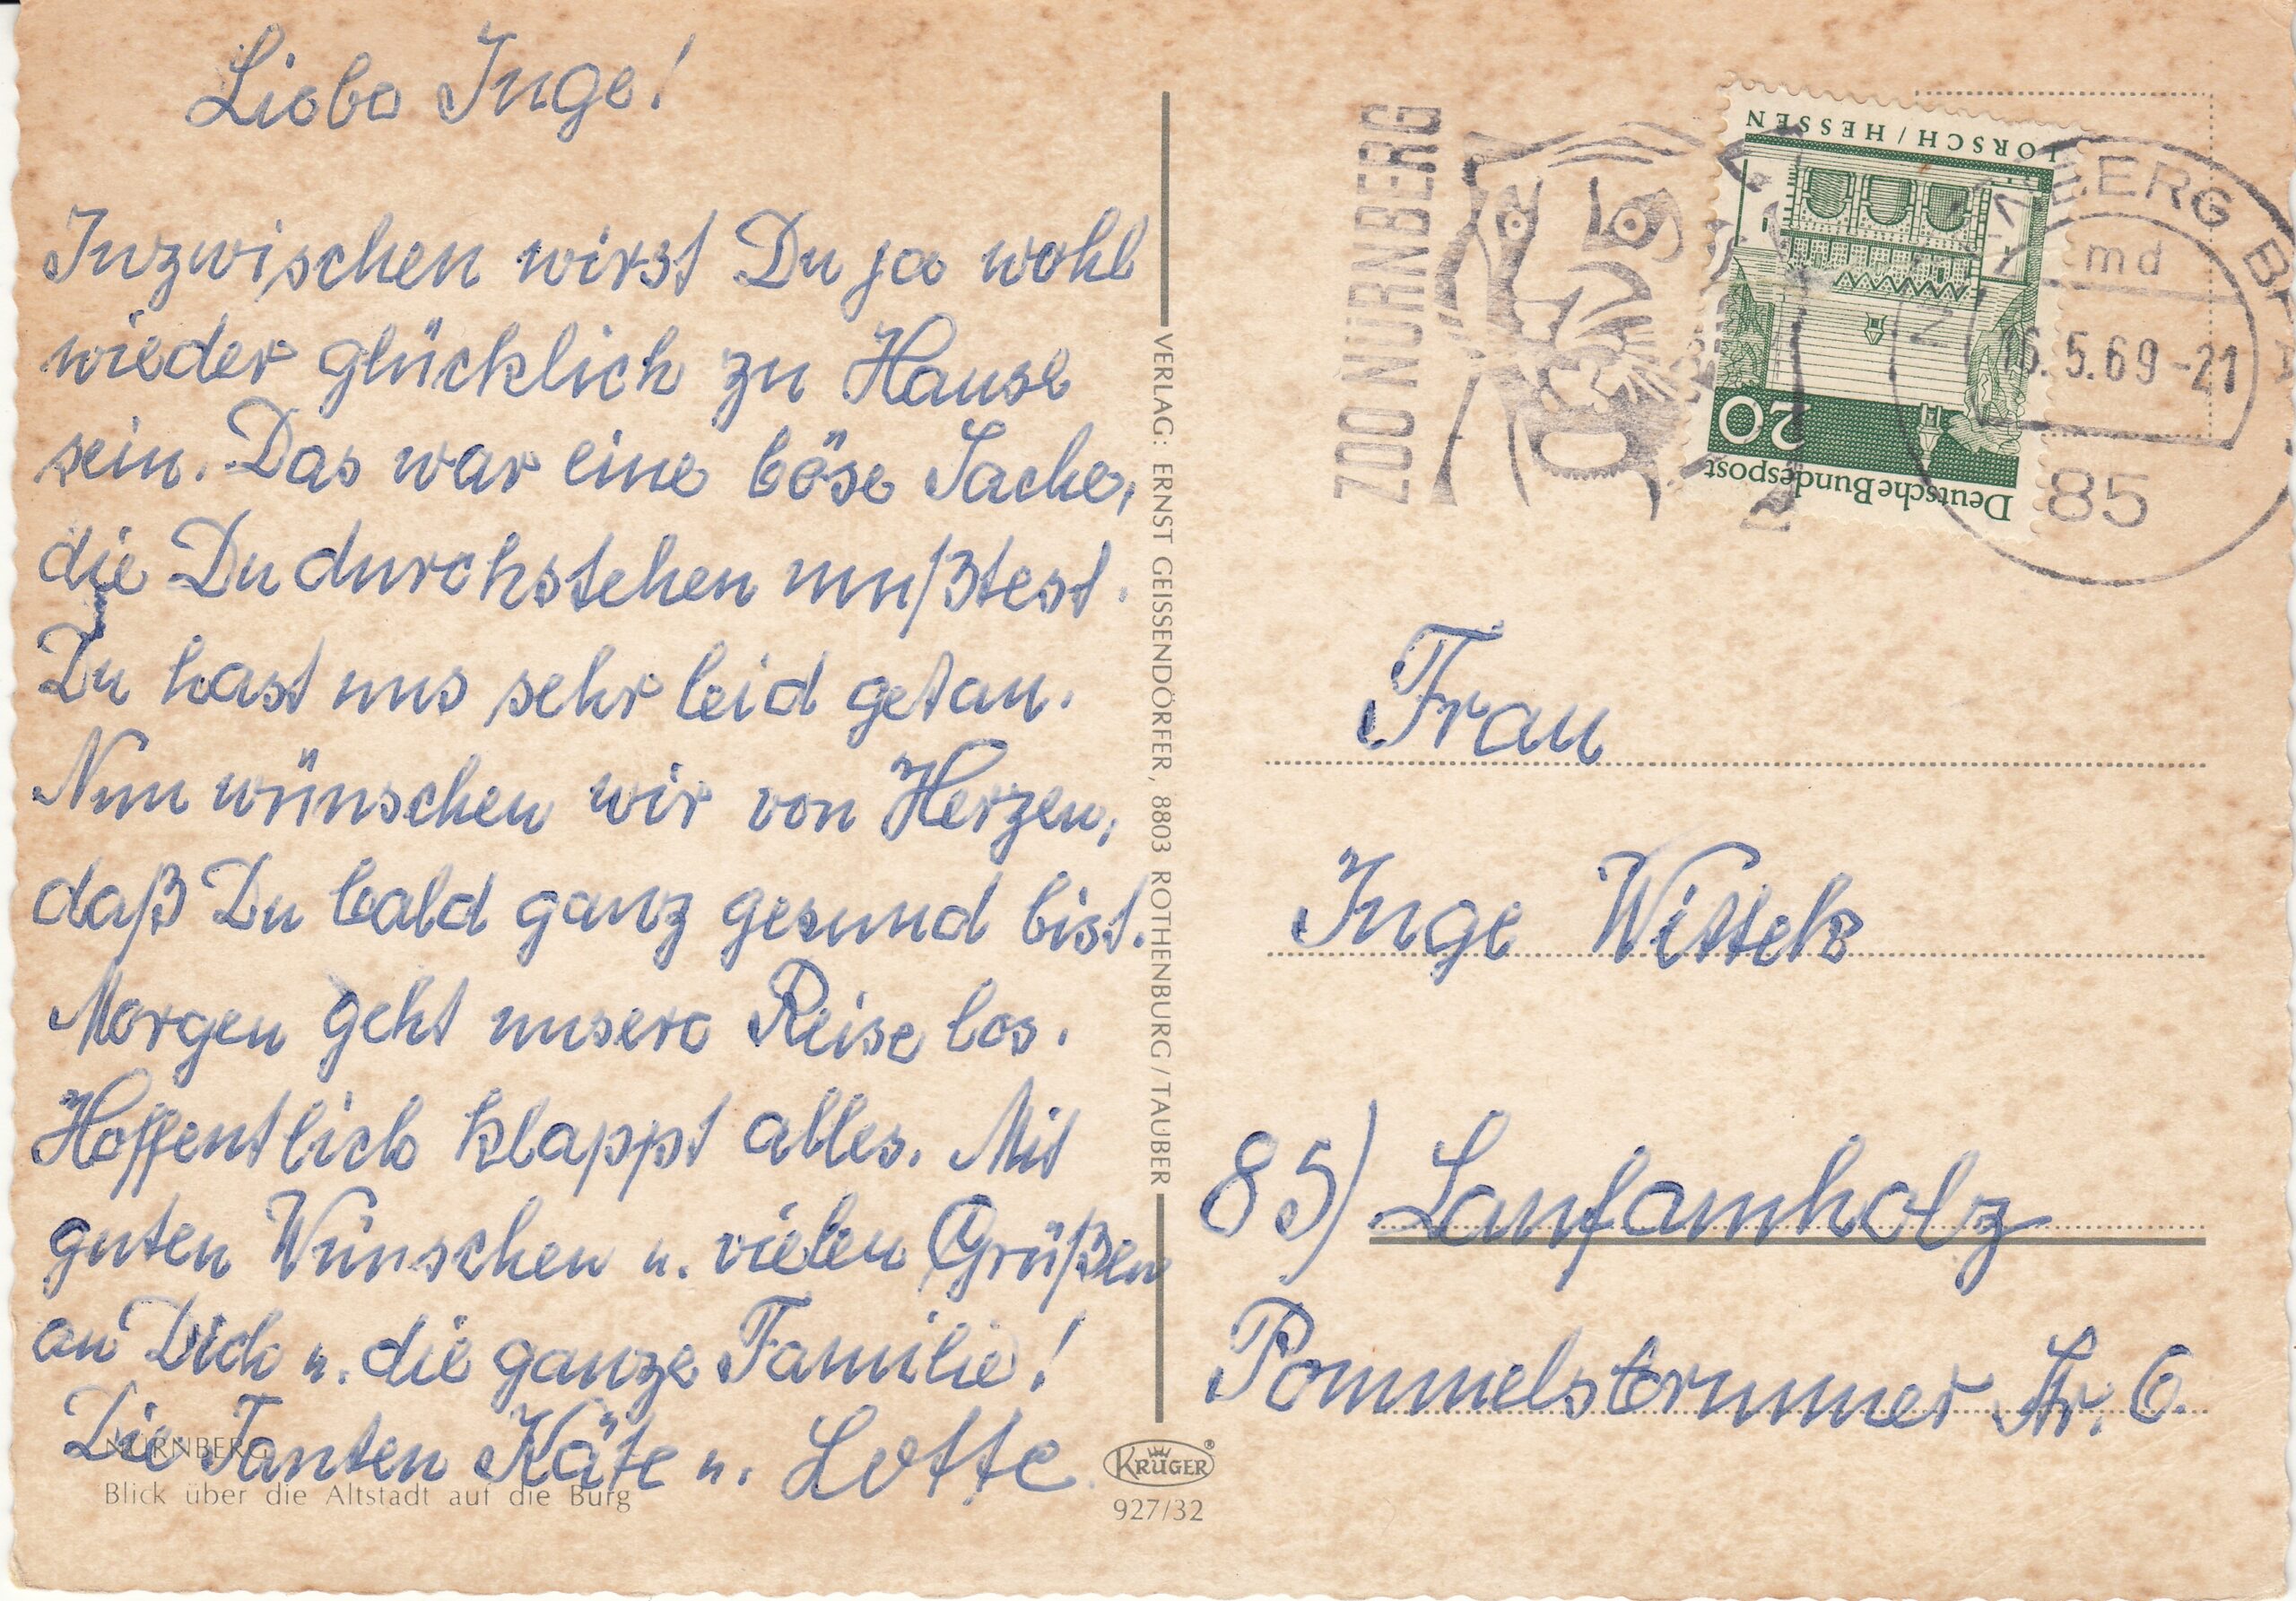 Liebe Inge!
Inzwischen wirst Du ja wohl
wieder glücklich zu Hause
sein. Das war eine böse Sache,
die Du durchstehen mußtest.
Du hast uns sehr leid getan.
Nun wünschen wir von Herzen,
daß Du bald ganz gesund bist.
Morgen geht unsere Reise los.
Hoffentlich klappt alles. Mit
guten Wünschen u. vielen Grüßen
an Dich u. die ganze Familie!
Die Tanten Käte u. Lotte
NÜRNBERG
Blick über die Altstadt auf die Burg
VERLAG: ERNST GEISSENDÖRFER, 8803 ROTHENBURG/TAUBER
KRÜGER®
927/32
ZOO NÜRNBERG
LORSCH/HESSEN
20
Deutsche Bundespost
NÜRNBERG
md
5.69-21
85
Frau
Inge Wittek
85) Laufamholz
Pommelsbrunner Str. 6.